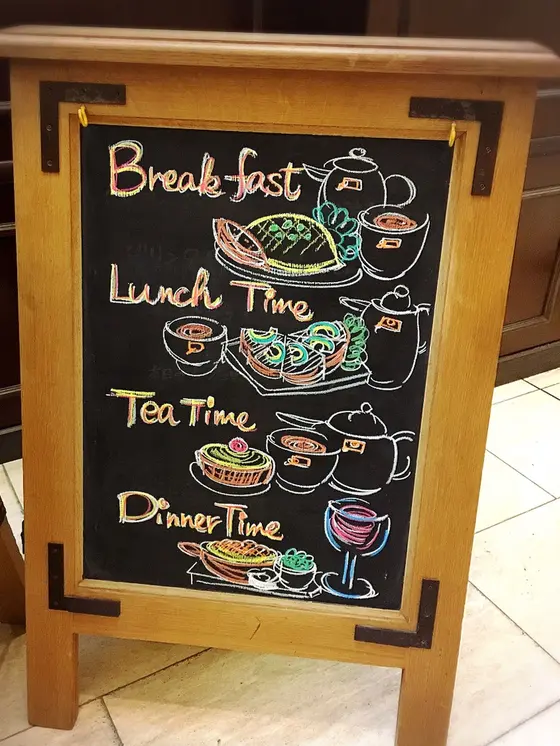 Breakfast
Lunch Time
Tea Time
Dinner Time